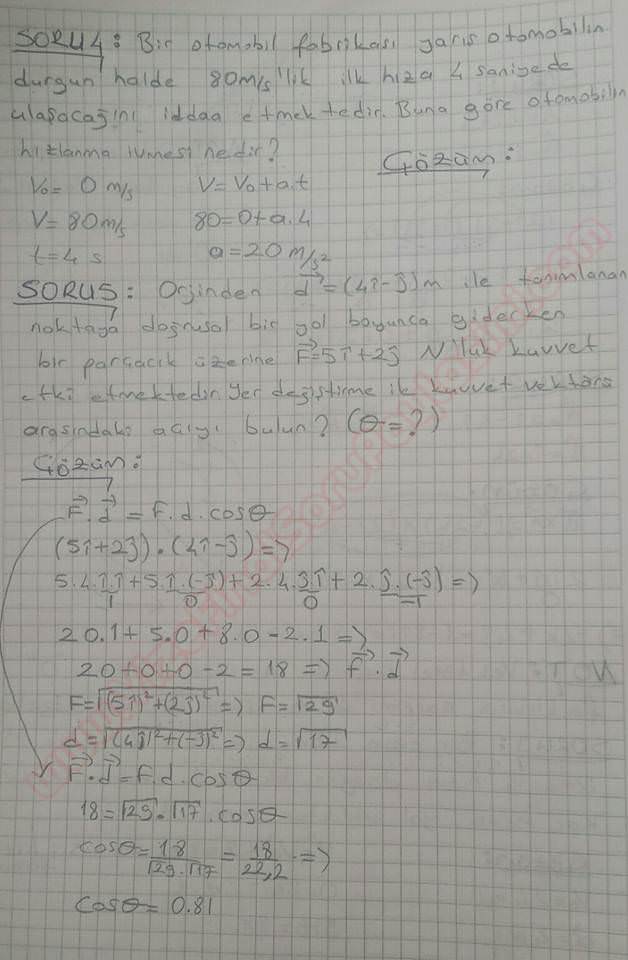 SORU4: Bir otomobil fabrikası yarış otomobilin
durgun halde 80m/s'lik ilk hıza 4 saniyede
ulaşacağını iddaa etmektedir. Buna göre otomobilin
hızlanma ivmesi nedir?
Çözüm:
V₀= 0 m/s V=V₀+a.t
V= 80m/s 80=0+a.4
t=4 s a=20m/s²
SORU5: Orjinden d⃗=(4î-ĵ)m ile tanımlanan
noktaya doğrusal bir yol boyunca giderken
bir parçacık üzerine F⃗=5î+2ĵ N'luk kuvvet
etki etmektedir. Yer değiştirme ile kuvvet vektörü
arasındaki açıyı bulun? (θ=?)
Çözüm:
F⃗.d⃗=F.d.cosθ
(5î+2ĵ).(4î-ĵ)=>
5.4.î.î+5.î.(-ĵ)+2.4.ĵ.î+2.ĵ.(-ĵ)=>
1 0 0 -1
20.1+5.0+8.0-2.1=>
20+0+0-2=18=> F⃗.d⃗
F=√(5î)²+(2ĵ)²=> F=√29
d=√(4î)²+(-ĵ)²=> d=√17
F⃗.d⃗=F.d.cosθ
18=√29.√17.cosθ
cosθ=18/√29.√17=18/22,2=>
Cosθ=0.81